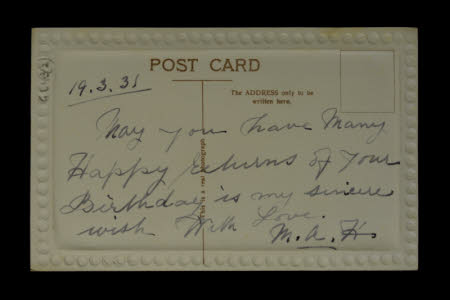 POST CARD
19.3.31
The ADDRESS only to be
written here.
May you have Many
Happy returns of Your
Birthday is my sincere
wish With Love.
M.A.H.
This is a real photograph